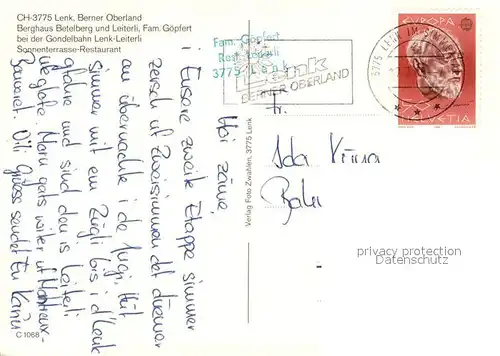 CH-3775 Lenk. Berner Oberland
Berghaus Betelberg und Leiterli, Fam. Göpfert
bei der Gondelbahn Lenk-Leiterli
Sonnenterrasse-Restaurant
Fam. Göpfert
3775 Lenk
Lenk
BERNER OBERLAND
3775 LENK IM SIMMENTAL
EUROPA
HELVETIA
Hoi zäme
i Eusere zweite Etappe simmer
zersch uf Zweisimmen det
am übernachte i de Jugi, Hüt
simmer mit em Zügli bis i d'Lenk
gfahre und sind den is Leiterli
ufe gloffe. Morn gats witer uf Montreux
Vili Grüess sendet Eu
Fr.
Verlag Foto Zwahlen, 3775 Lenk
C 1068
privacy protection
Datenschutz